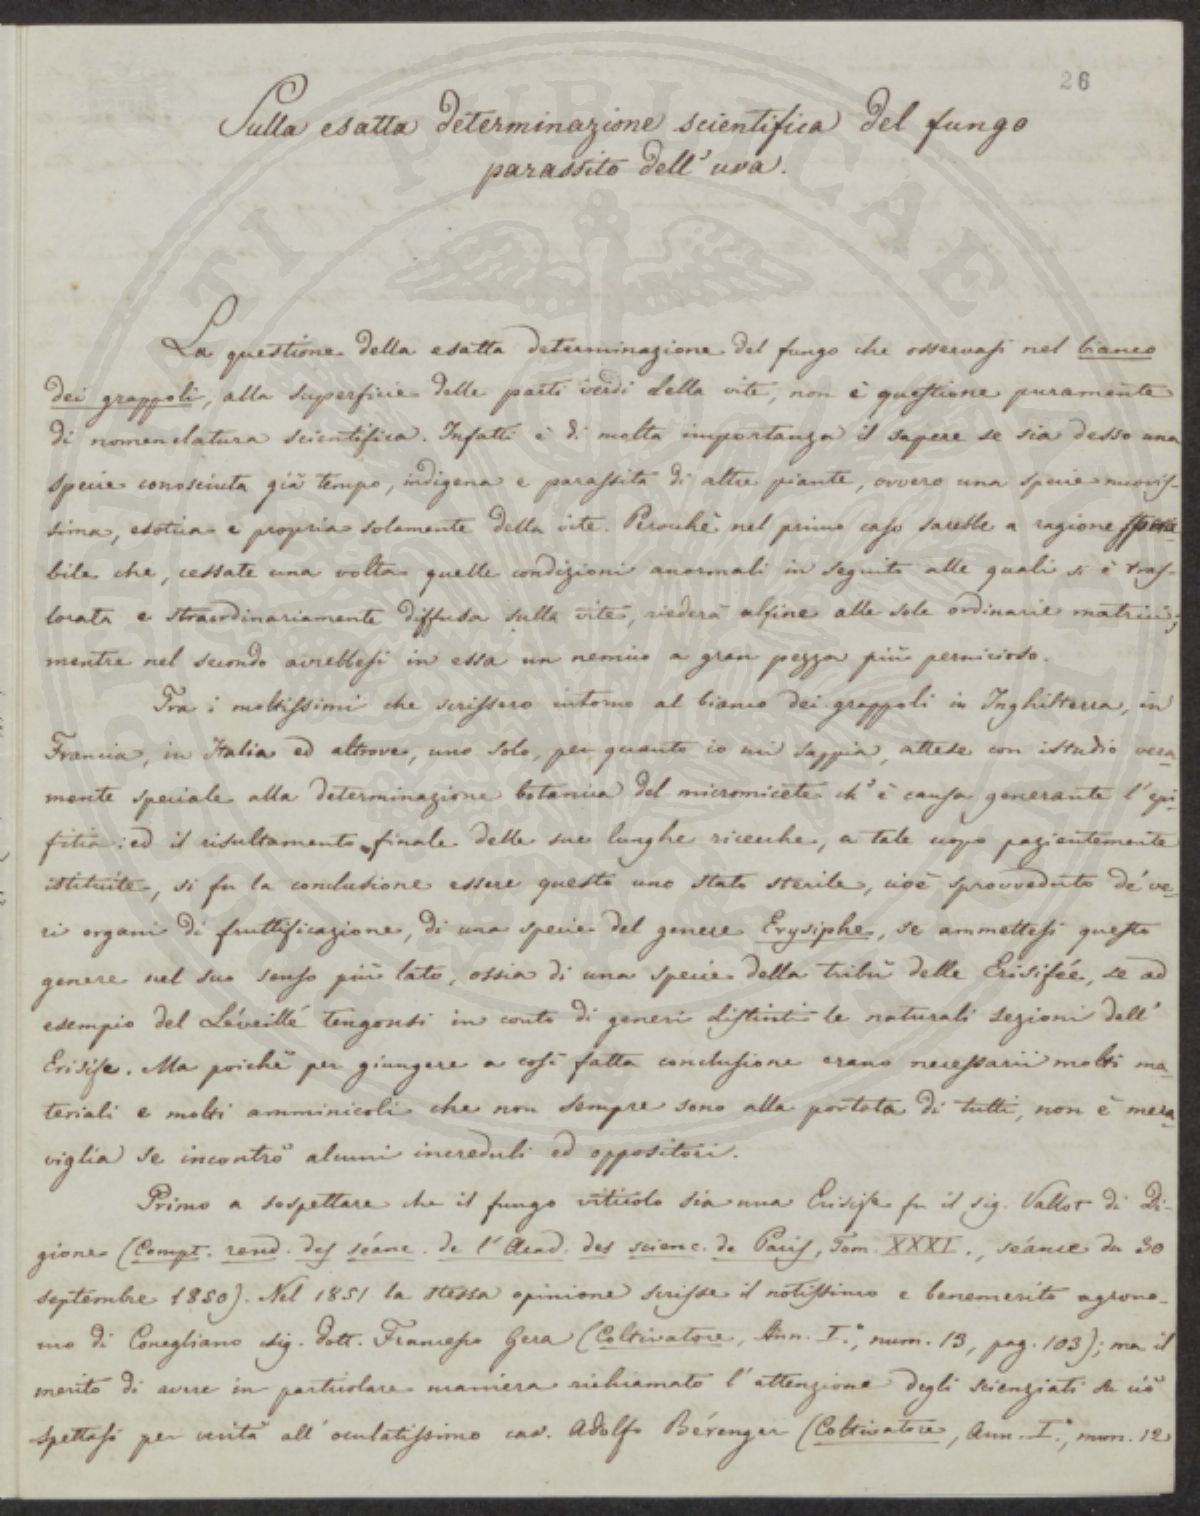 26
Sulla esatta determinazione scientifica del fungo
parassito dell'uva.
La questione della esatta determinazione del fungo che osservasi nel bianco
dei grappoli, alla superficie delle parti verdi della vite, non è questione puramente
di nomenclatura scientifica. Infatti è di molta importanza il sapere se sia desso una
specie conosciuta già tempo, indigena e parassita di altre piante, ovvero una specie nuovis-
sima, esotica e propria solamente della vite. Perocchè nel primo caso sarebbe a ragione spera-
bile che, cessate una volta quelle condizioni anormali in seguito alle quali si è tras-
locata e straordinariamente diffusa sulla vite, riederà alfine alle sole ordinarie matrici;
mentre nel secondo avrebbesi in essa un nemico a gran pezza più pernicioso.
Tra i moltissimi che scrissero intorno al bianco dei grappoli in Inghilterra, in
Francia, in Italia ed altrove, uno solo, per quanto io mi sappia, attese con istudio vera-
mente speciale alla determinazione botanica del micromicete ch'è causa generante l'epi-
fitia: ed il risultamento finale delle sue lunghe ricerche, a tale uopo pazientemente
istituite, si fu la conclusione essere questo uno stato sterile, cioè sprovveduto de' ve-
ri organi di fruttificazione, di una specie del genere Erysiphe, se ammettesi questo
genere nel suo senso più lato, ossia di una specie della tribù delle Erisifée, se ad
esempio del Léveillé tengonsi in conto di generi distinti le naturali sezioni dell'
Erisife. Ma poichè per giungere a così fatta conclusione erano necessarii molti ma-
teriali e molti amminicoli che non sempre sono alla portata di tutti, non è mera-
viglia se incontrò alcuni increduli ed oppositori.
Primo a sospettare che il fungo viticolo sia una Erisife fu il sig. Vallot di Di-
gione (Compt. rend. des séanc. de l'Acad. des scienc. de Paris, Tom. XXXI., séance du 30
septembre 1850). Nel 1851 la stessa opinione scrisse il notissimo e benemerito agrono-
mo di Conegliano sig. dott. Francesco Gera (Coltivatore, Ann. I.°, num. 13, pag. 103); ma il
merito di avere in particolare maniera richiamato l'attenzione degli scienziati su ciò
spettasi per verità all'oculatissimo cav. Adolfo Bérenger (Coltivatore, Ann. I.°, num. 12